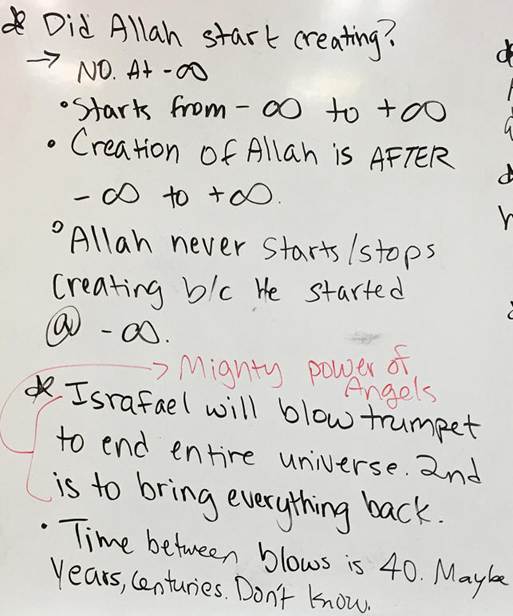 * Did Allah start creating?
→ NO. At -∞
• Starts from -∞ to +∞
• Creation of Allah is AFTER
-∞ to +∞.
° Allah never starts/stops
creating b/c He started
@ -∞.
→ Mighty power of
Angels
* Israfael will blow trumpet
to end entire universe. 2nd
is to bring everything back.
• Time between blows is 40. Maybe
years, centuries. Don't know.